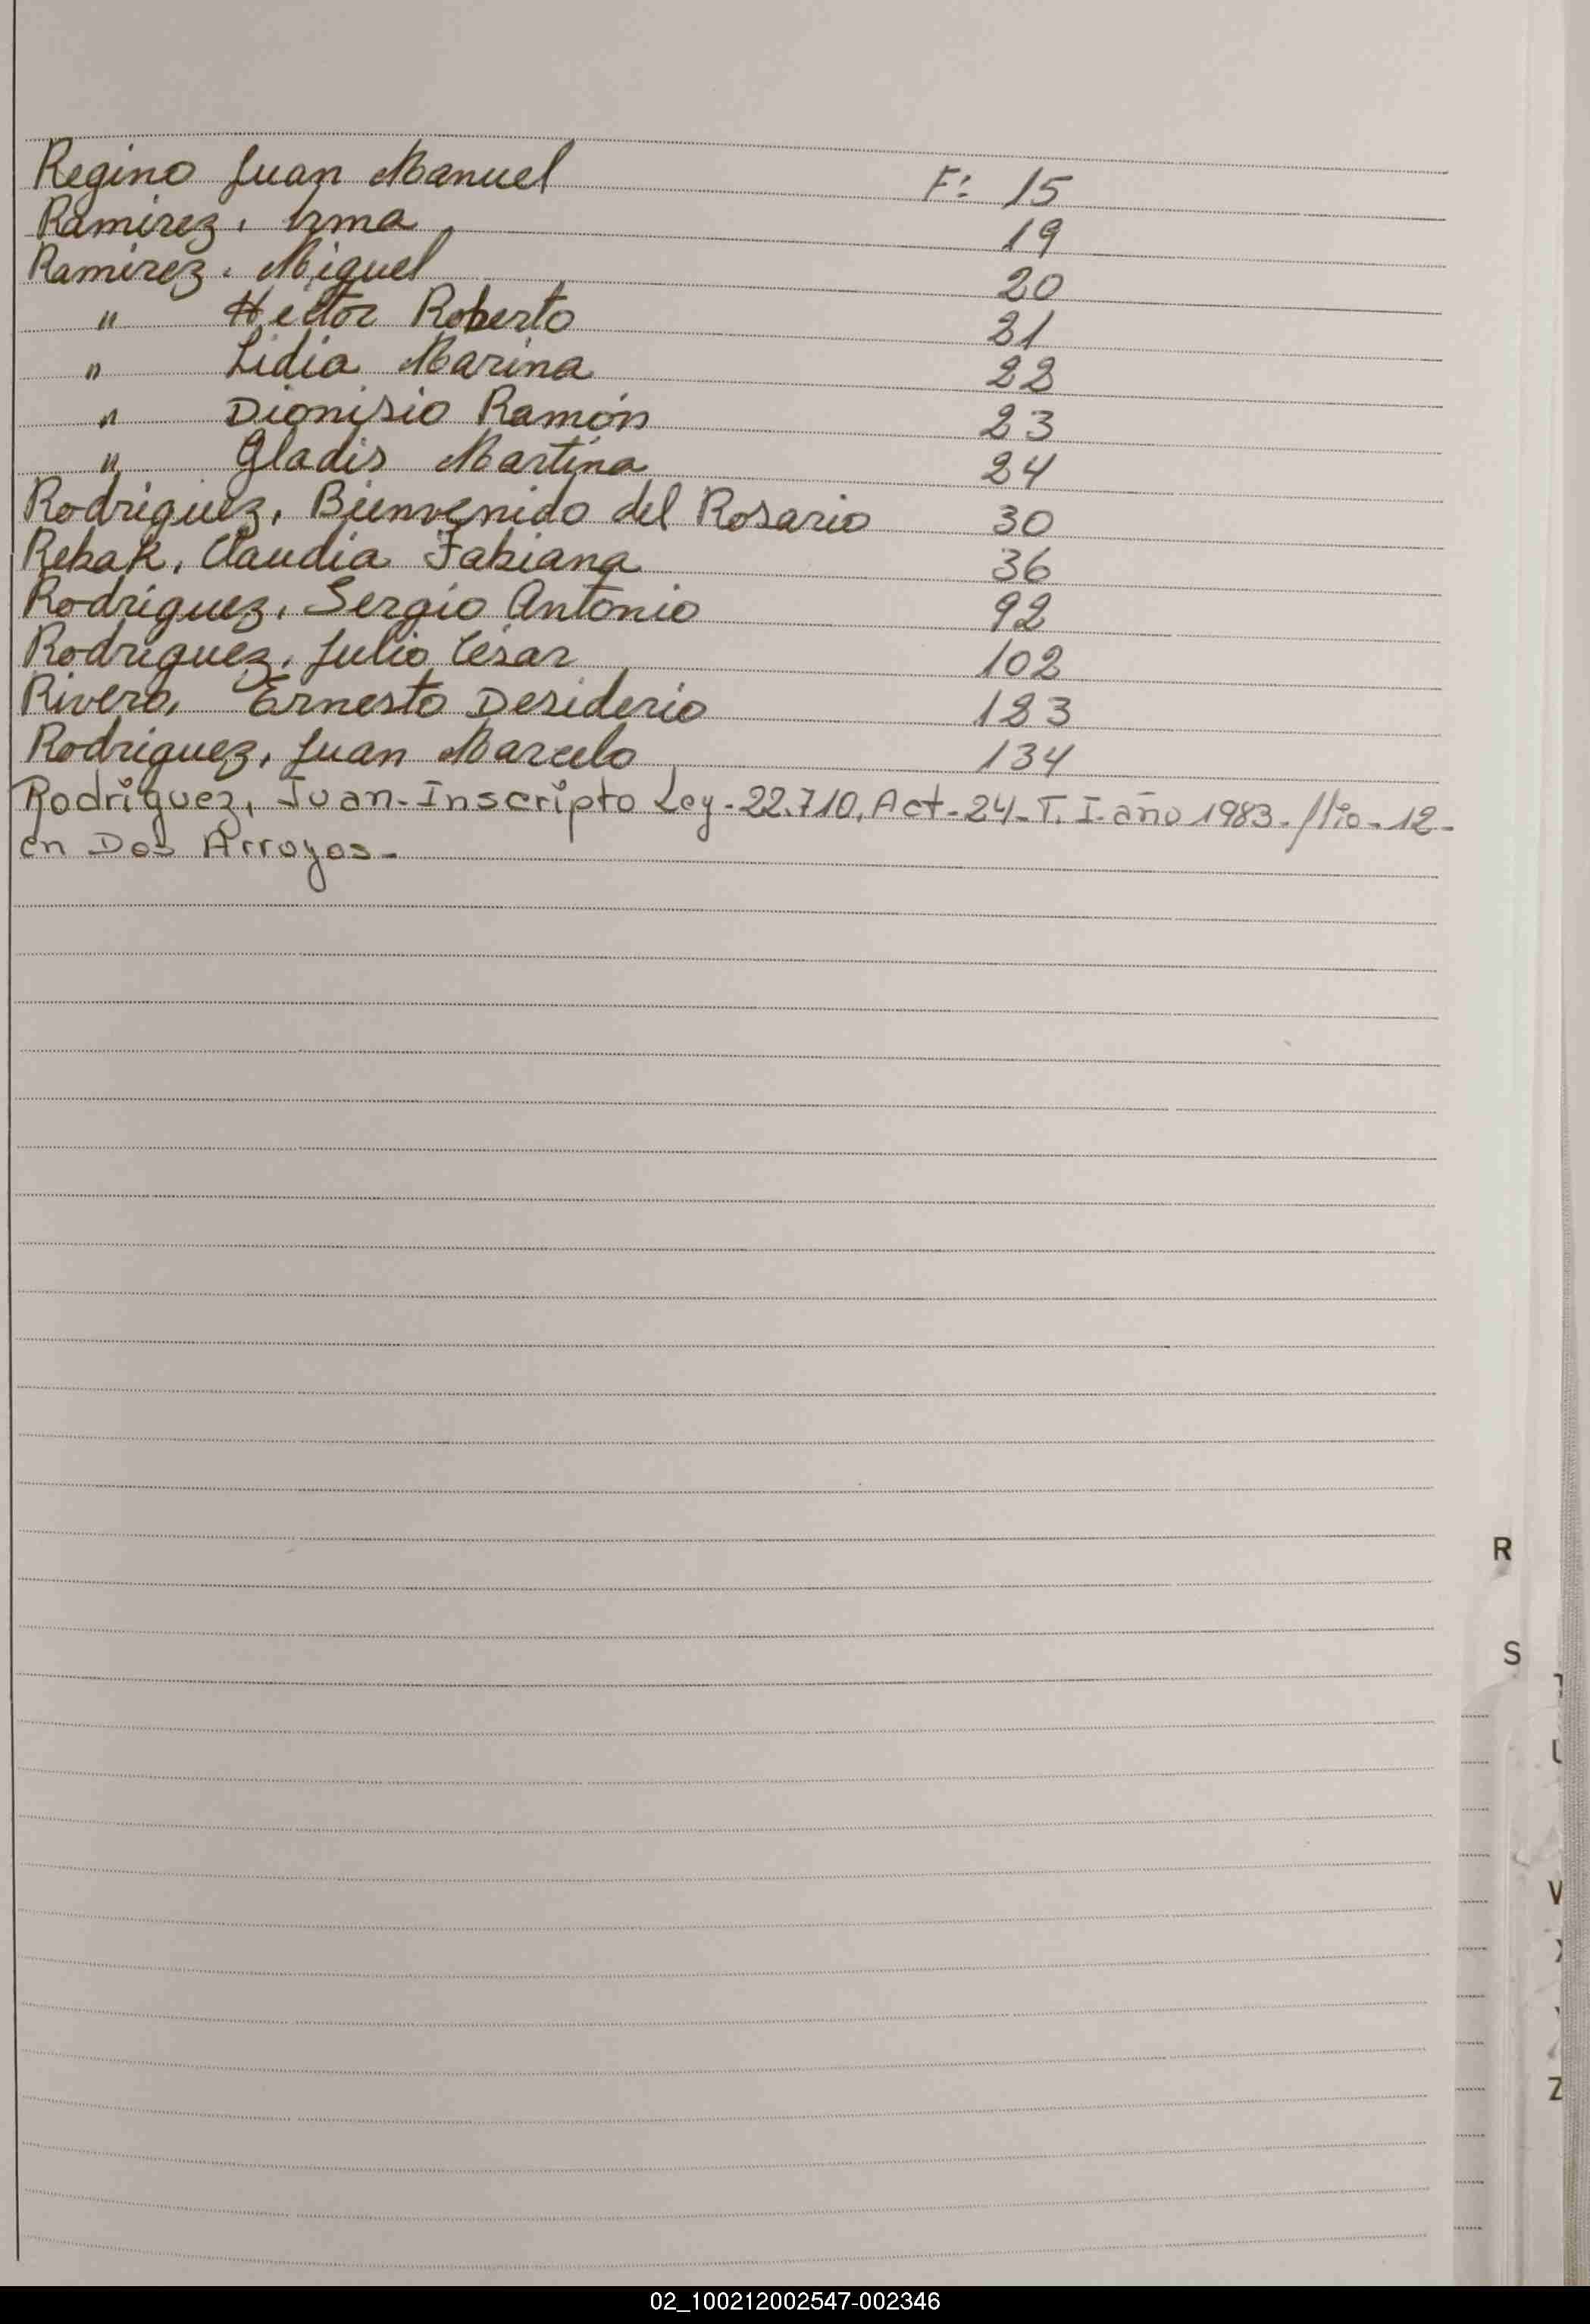 Regino Juan Manuel F: 15
Ramirez. Irma 19
Ramirez. Miguel 20
" Hector Roberto 21
" Lidia Marina 22
" Dionisio Ramón 23
" Gladis Martina 24
Rodriguez, Bienvenido del Rosario 30
Rebak, Claudia Fabiana 36
Rodriguez, Sergio Antonio 92
Rodriguez, Julio César 102
Rivero, Ernesto Desiderio 123
Rodriguez, Juan Marcelo 134
Rodriguez, Juan-Inscripto Ley-22.710, Act-24-T. I-año 1983- flio-12-
en Dos Arroyos-
R
S
U
V
Z
02_100212002547-002346